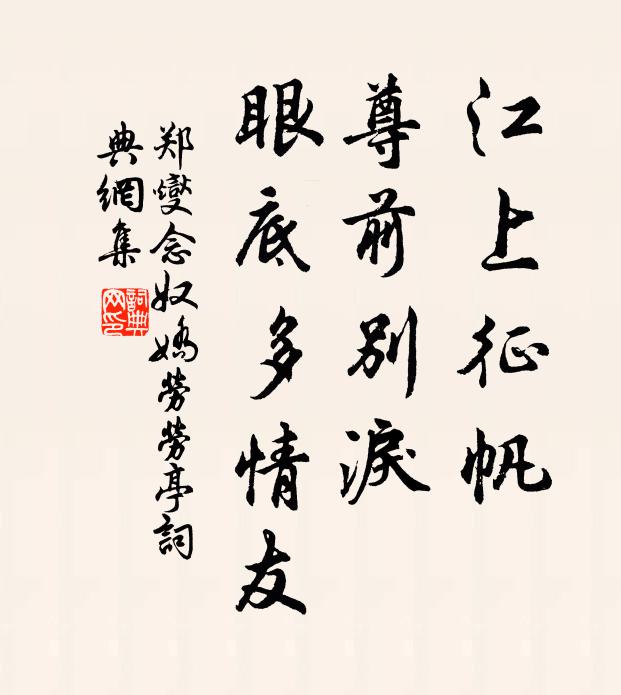 江上征帆
尊前別淚
眼底多情友
郑燮念奴嬌勞勞亭詞
典網集
詞典網印